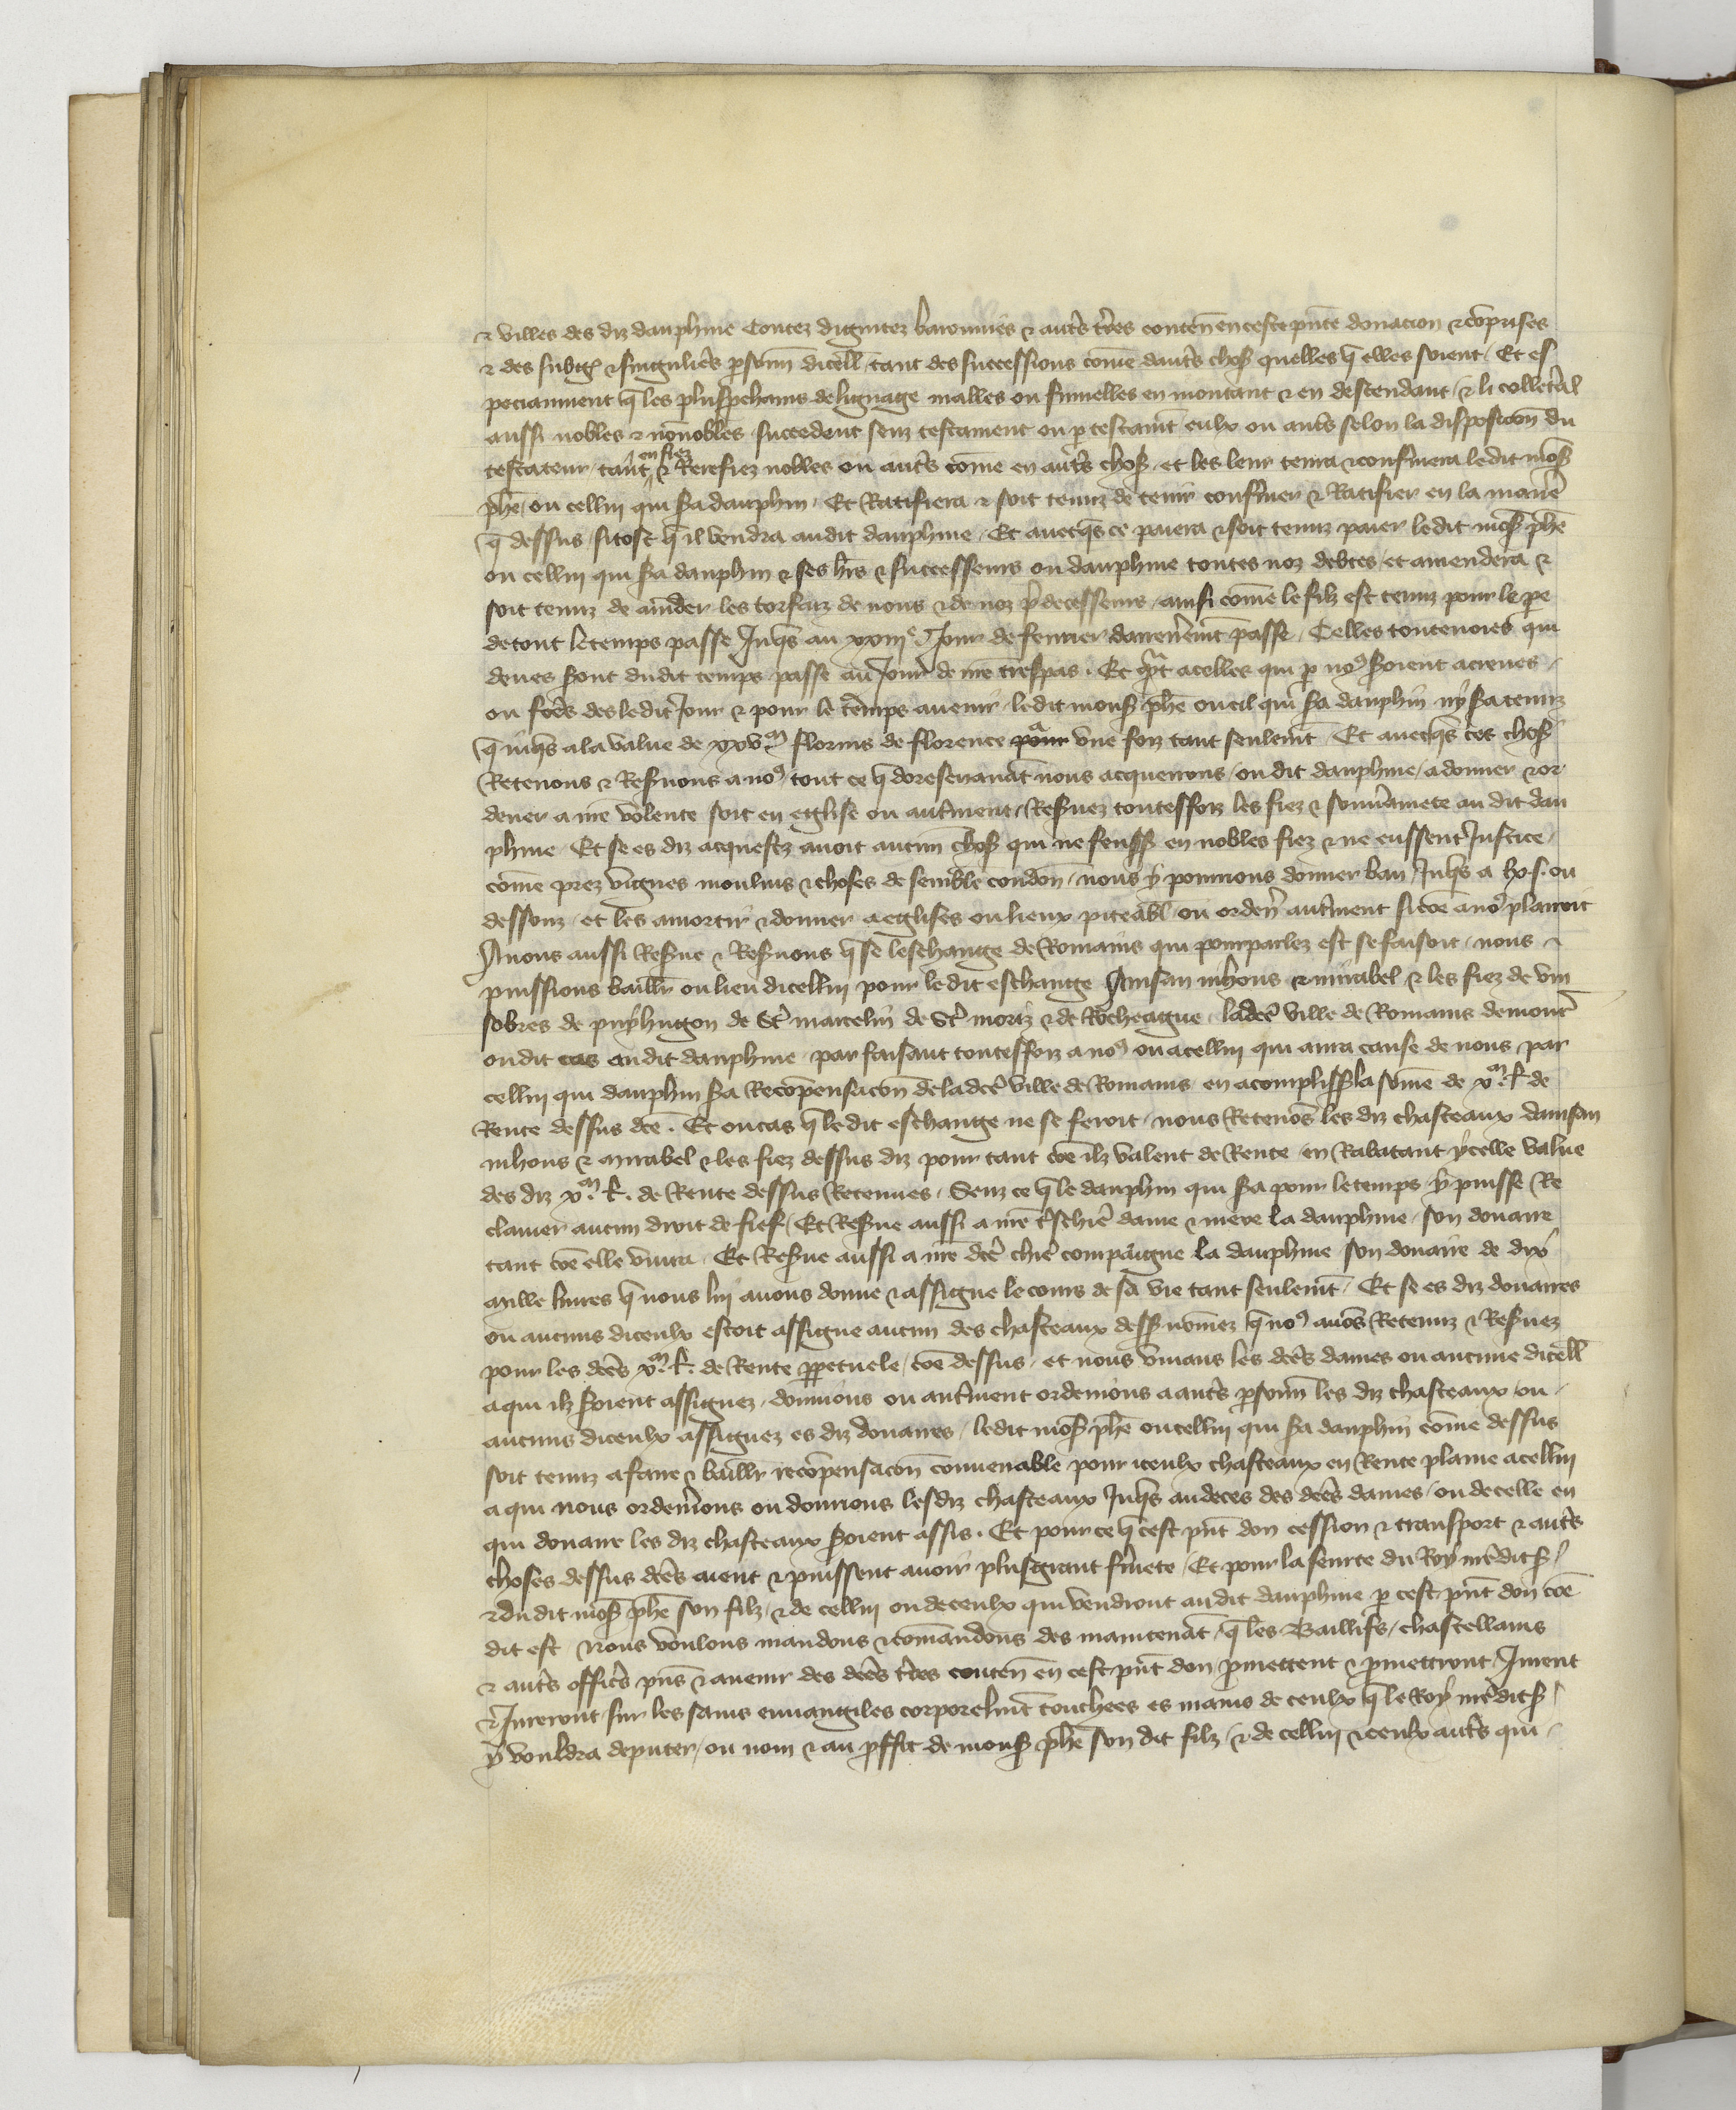 & villes des diz dauphine Contez dignitez baronnies & aut̃s t̃res conten̄ en ceste pñte donacion & cõprises
& des subgꝫ & singuliẽs ꝑsonñ dicell̃ tant des successions cõme daut̃s choß quelles q̃ elles soient / Et es
peciaument q̃ les plus ꝓchains de lignage malles ou fumelles en montant & en descendant / & li collet̃al
aussi nobles & nõnobles succedent senz testament ou ꝑ testam̃t eulx ou aut̃s selon la disposicõn du
testateur / tant en fiez & Rerefiez nobles ou aut̃s cõme en aut̃s choß / et les leur tenra & confĩmera ledit mõß
ph̃e / ou cellui qui s̃a dauphin / Et Ratifiera & soit tenuz de tenir confirmer & Ratifier en la manĩe
q̃ dessus / si tost q̃ il vendra audit dauphine / Et auecq̃s ce paiera & soit tenuz paier ledit mõß ph̃e
ou cellui qui s̃a dauphin & ses hr̃s & successeurs ou dauphine toutes noz debtes / et amendera &
soit tenuz de am̃der les torfaiz de nous & de noz p̃decesseurs / ainsi cõme le filz est tenuz pour le pe
de tout le temps passe Jusq̃s au xxiiiᵉ Jour de feurier darren̄em̃t passe / Celles touteuoies qui
deues sont dudit temps passe au Jour de nr̃e trespas . Et q̃nt a celles qui ꝑ noꝰ s̃oient acreues /
ou fc̃es des ledit Jour & pour le temps auenir / ledit monß ph̃e ou cil qui s̃a dauphin ny s̃a tenuz
q̃ iusq̃s a la value de xxvᵐ florins de florence pour vne foiz tant seulem̃t / Et auecq̃s ces choß
Retenons & Res̃uons a noꝰ tout ce q̃ doresenauãt nous acquerrons / ou dit dauphine / a donner & or
dener a nr̃e volente soit en eglise ou aut̃ment / Res̃uez toutesfoiz les fiez & souu̾ainete au dit dau
phine / Et se es diz acquestz auoit aucun̄ choß qui ne feussß en nobles fiez & ne eussent Justice /
cõme prez vignes moulins & choses de semble condõn / nous y pourrions donner ban Jusq̃s a lx s. ou
dessouz / et les amortir & donner a eglises ou lieux piteabl̃ ou ordeñ aut̃ment si cõe a noꝰ plairoit
Auons aussi Res̃ue & Res̃uons q̃ se leschange de Romains qui pourparlez est se faisoit / nous
puissions baillr̃ ou lieu dicellui pour ledit eschange Ausan nihons & mirabel & les fiez de vin
sobres de puyhugon de st̃ marcelin de st̃ moriz & de Rocheague / ladc̃e ville de Romains demour̃
ou dit cas audit dauphine / par faisant toutesfoiz a noꝰ ou a cellui qui aura cause de nous / par
cellui qui dauphin s̃a Recõpensacõn de ladc̃e ville de Romains en acomplissß la sõme de xᵐ. f. de
Rente dessus dc̃e . Et ou cas q̃ le dit eschange ne se feroit / nous Retenõs les diz chasteaux dausan
nihons & mirabel & les fiez dessus diz pour tant cõe ilz valent de Rente en Rabatant ycelle value
des diz xᵐ. f. de Rente dessus Retenues / Senz ce q̃ le dauphin qui s̃a pour le temps y puisse Re
clamer aucun droit de fief / Et Res̃ue aussi a nr̃e t̃schiẽ dame & mere la dauphine / son douaire
tant cõe elle viura / Et Res̃ue aussi a nr̃e dc̃e chiẽ compaigne la dauphine son douaire de dix
mille liures q̃ nous lui auons donne & assigne le cours de sa vie tant seulem̃t / Et se es diz douaires
ou aucuns diceulx estoit assigne aucun des chasteaux dessß nõmez q̃ noꝰ auõs Retenuz & Res̃uez
pour les dc̃es xᵐ. f. de Rente ꝑpetuele / cõe dessus / et nous viuans les dc̃es dames ou aucune dicell̃
a qui ilz s̃oient assignez / donnions ou aut̃ment ordenions a aut̃s ꝑsonñ les diz chasteaux / ou
aucuns diceulx assignez es diz douaires / ledit mõß ph̃e ou cellui qui s̃a dauphin cõme dessus
soit tenuz a faire & baillr̃ recõpensacõn conuenable pour iceulx chasteaux en Rente plaine a cellui
a qui nous ordenr̃ions ou donrions lesdiz chasteaux Jusq̃s au deces des dc̃es dames / ou de celle en
qui douaire les diz chasteaux s̃oient assis . Et pour ce q̃ cest pñt don cession & transport & aut̃s
choses dessus dc̃es aient & puissent auoir plus grant f̃mete / Et pour la seurte du Roy nr̃edits̃
& du dit mõß ph̃e son filz / & de cellui ou de ceulx qui vendront audit dauphine ꝑ cest pñt don cõe
dit est / Nous voulons mandons & cõmandons des maintenãt / q̃ les Baillifs / chastellains
& aut̃s offic̃s pñs & auenir des dc̃es t̃res conten̄ en cest pñt don / ꝑmettent & ꝑmettront / Jurent
& Jureront sur les sains euuangiles corporelm̃t touchees es mains de ceulx q̃ le Roy nr̃edits̃
y vouldra deputer / ou nom & au ꝓffit de monß ph̃e son dit filz / & de cellui & ceulx aut̃s qui